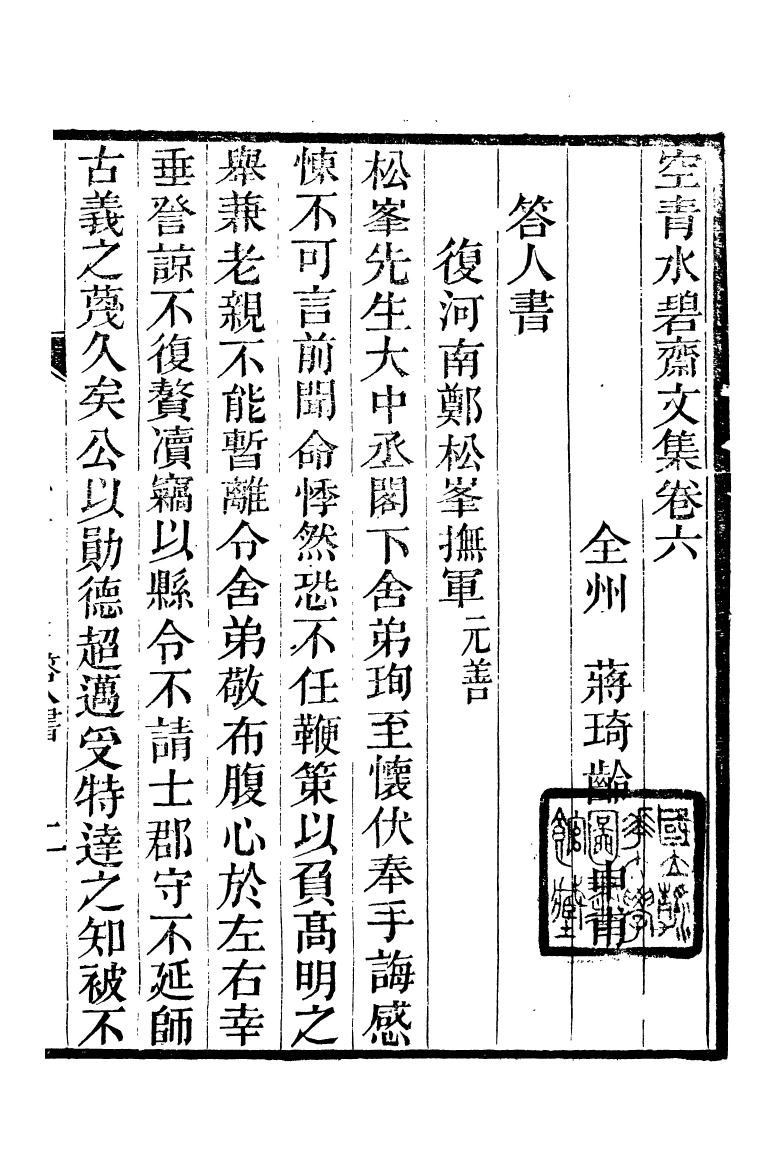 空青水碧齋文集卷六
全州　蔣琦齡　申甫
答人書
復河南鄭松峯撫軍元善
松峯先生大中丞閣下舍弟珣至懷伏奉手誨感
悚不可言前聞命悸然恐不任鞭策以負高明之
舉兼老親不能暫離令舍弟敬布腹心於左右幸
垂詧諒不復贅瀆竊以縣令不請士郡守不延師
古義之蔑久矣公以勛德超邁受特達之知被不
答人書
一
國立清華大學圖書館藏